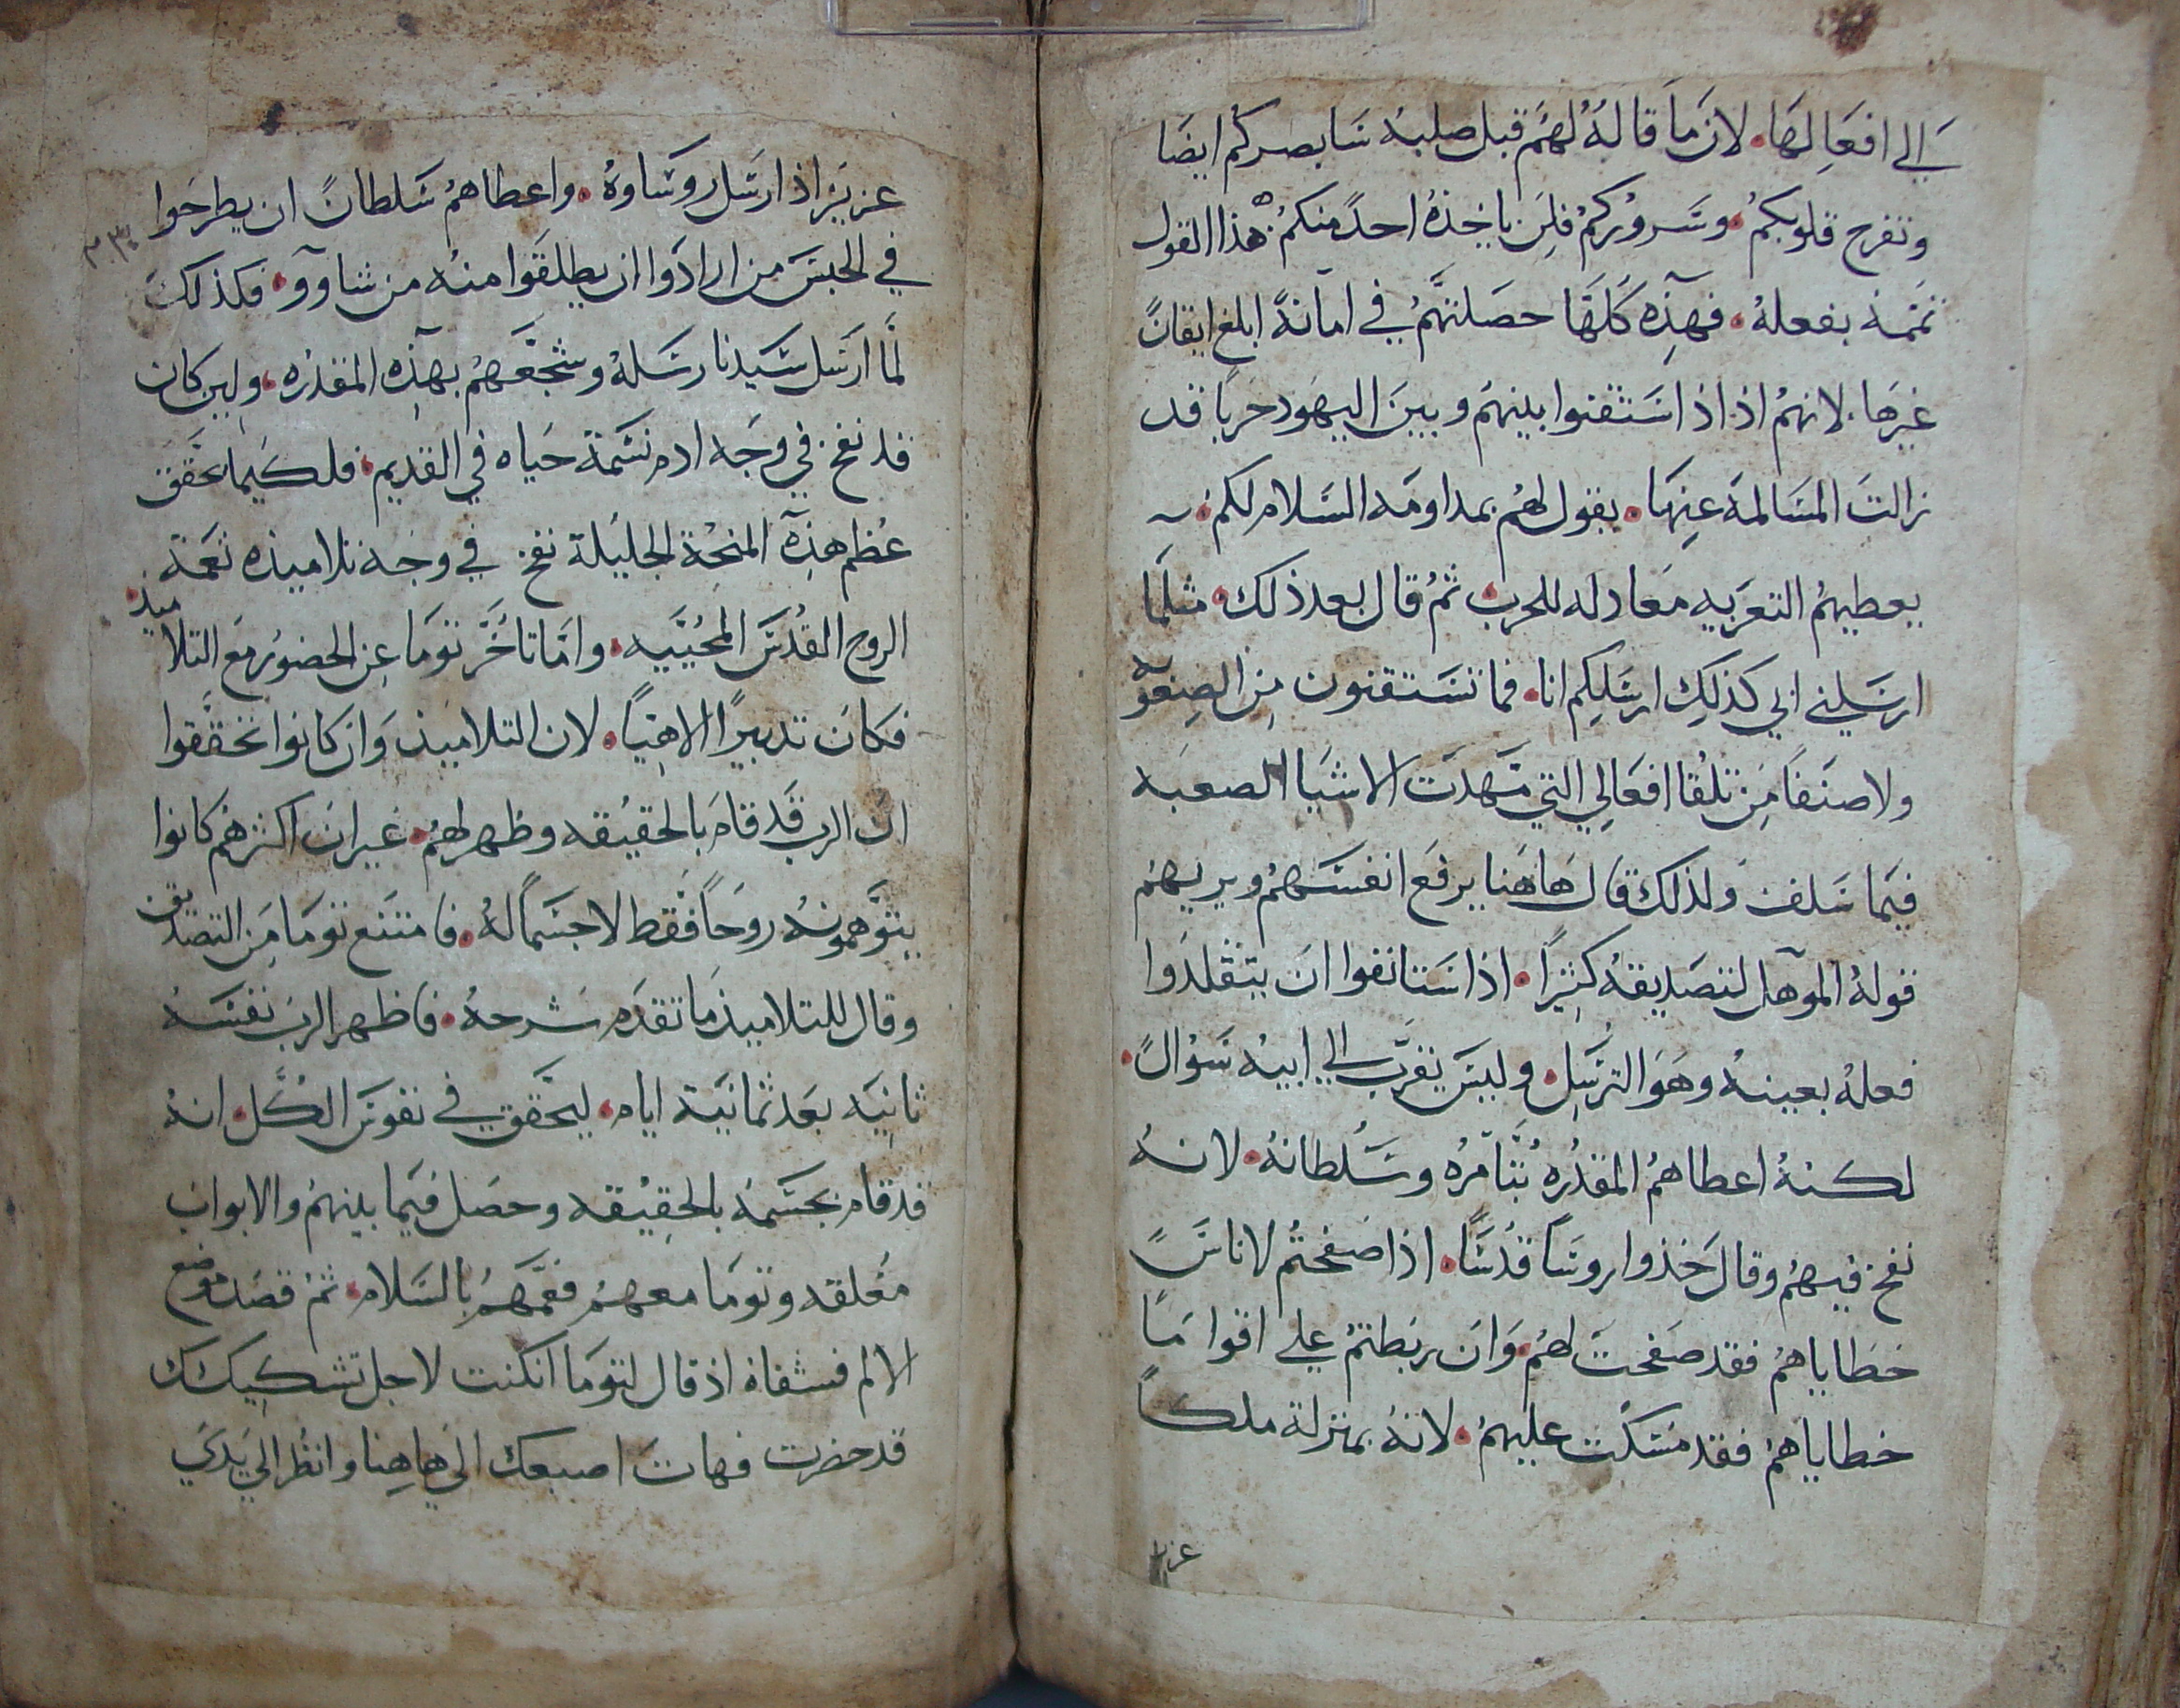 الي افعالها. لان ما قاله لهم قبل صلبه سابصركم ايضا
وتفرح قلوبكم. وسروركم فلن ياخذه احد منكم. هذا القول
تممه بفعله. فهذه كلها حصلتهم في امانة ابلغ ايقانً
غيرها. لانهم اذ اذ استثقنوا بينهم وبين اليهود حرباً قد
زالت المسالمة عنها. يقول لهم بمداومه السلام لكم.
يعطيهم التعزيه معادله للحرب ثم قال بعد ذلك. مثلما
ارسلني ابي كذلك ارسلكم انا. فما تستقنون من الصعوبه
ولا صنفاً من تلقا افعالي التي مهدت الاشيا الصعبه
فيما سلف ولذلك قال هاهنا يرفع انفسهم ويريهم
قوله الموهل لتصديقه كثيراً. اذا ستانفوا ان يتقلدوا
فعله بعينه وهو الترسل. وليس يقرب الي ابيه سوالً.
لكنه اعطاهم المقدره بتامره وسلطانه. لانه
نفخ فيهم وقال خذوا روحاً قدساً. اذا صفحتم لاناسً
خطاياهم فقد صفحت لهم. وان ربطتم علي اقواماً
خطاياهم فقد مسكت عليهم. لانه بمنزلة ملكاً
عزيز
عزيز اذ ارسل روساوه. واعطاهم سلطانً ان يطرحوا
في الحبس من ارادوا ان يطلقوا منه من شاوو. فكذلك
لما ارسل سيدنا رسله وشجعهم بهذه المقدره. ولين كان
قد نفخ في وجه ادم نسمة حياه في القديم. فلكيما تحقق
عظم هذه المنحة الجليلة نفخ في وجه تلاميذه نعمة
الروح القدس المحييه. واما تاخر توما عن الحضور مع التلاميذ
فكان تدبيراً الاهياً. لان التلاميذ وان كانوا تحققوا
ان الرب قد قام بالحقيقه وظهر لهم. غير ان اكثرهم كانوا
يتوهمونه روحاً فقط لا جسماً له. فامتنع توما من التصديق
وقال للتلاميذ ما تقدم شرحه. فاظهر الرب نفسه
ثانيه بعد ثمانية ايام. ليحقق في نفوس الكل. انه
قد قام بجسمه بالحقيقه وحصل فيما بينهم والابواب
مغلقه وتوما معهم فعمهم بالسلام. ثم قصد موضع
الالم فشفاه اذ قال لتوما انكنت لاجل تشكيكك
قد حضرت فهات اصبعك الي هاهنا وانظر الي يدي